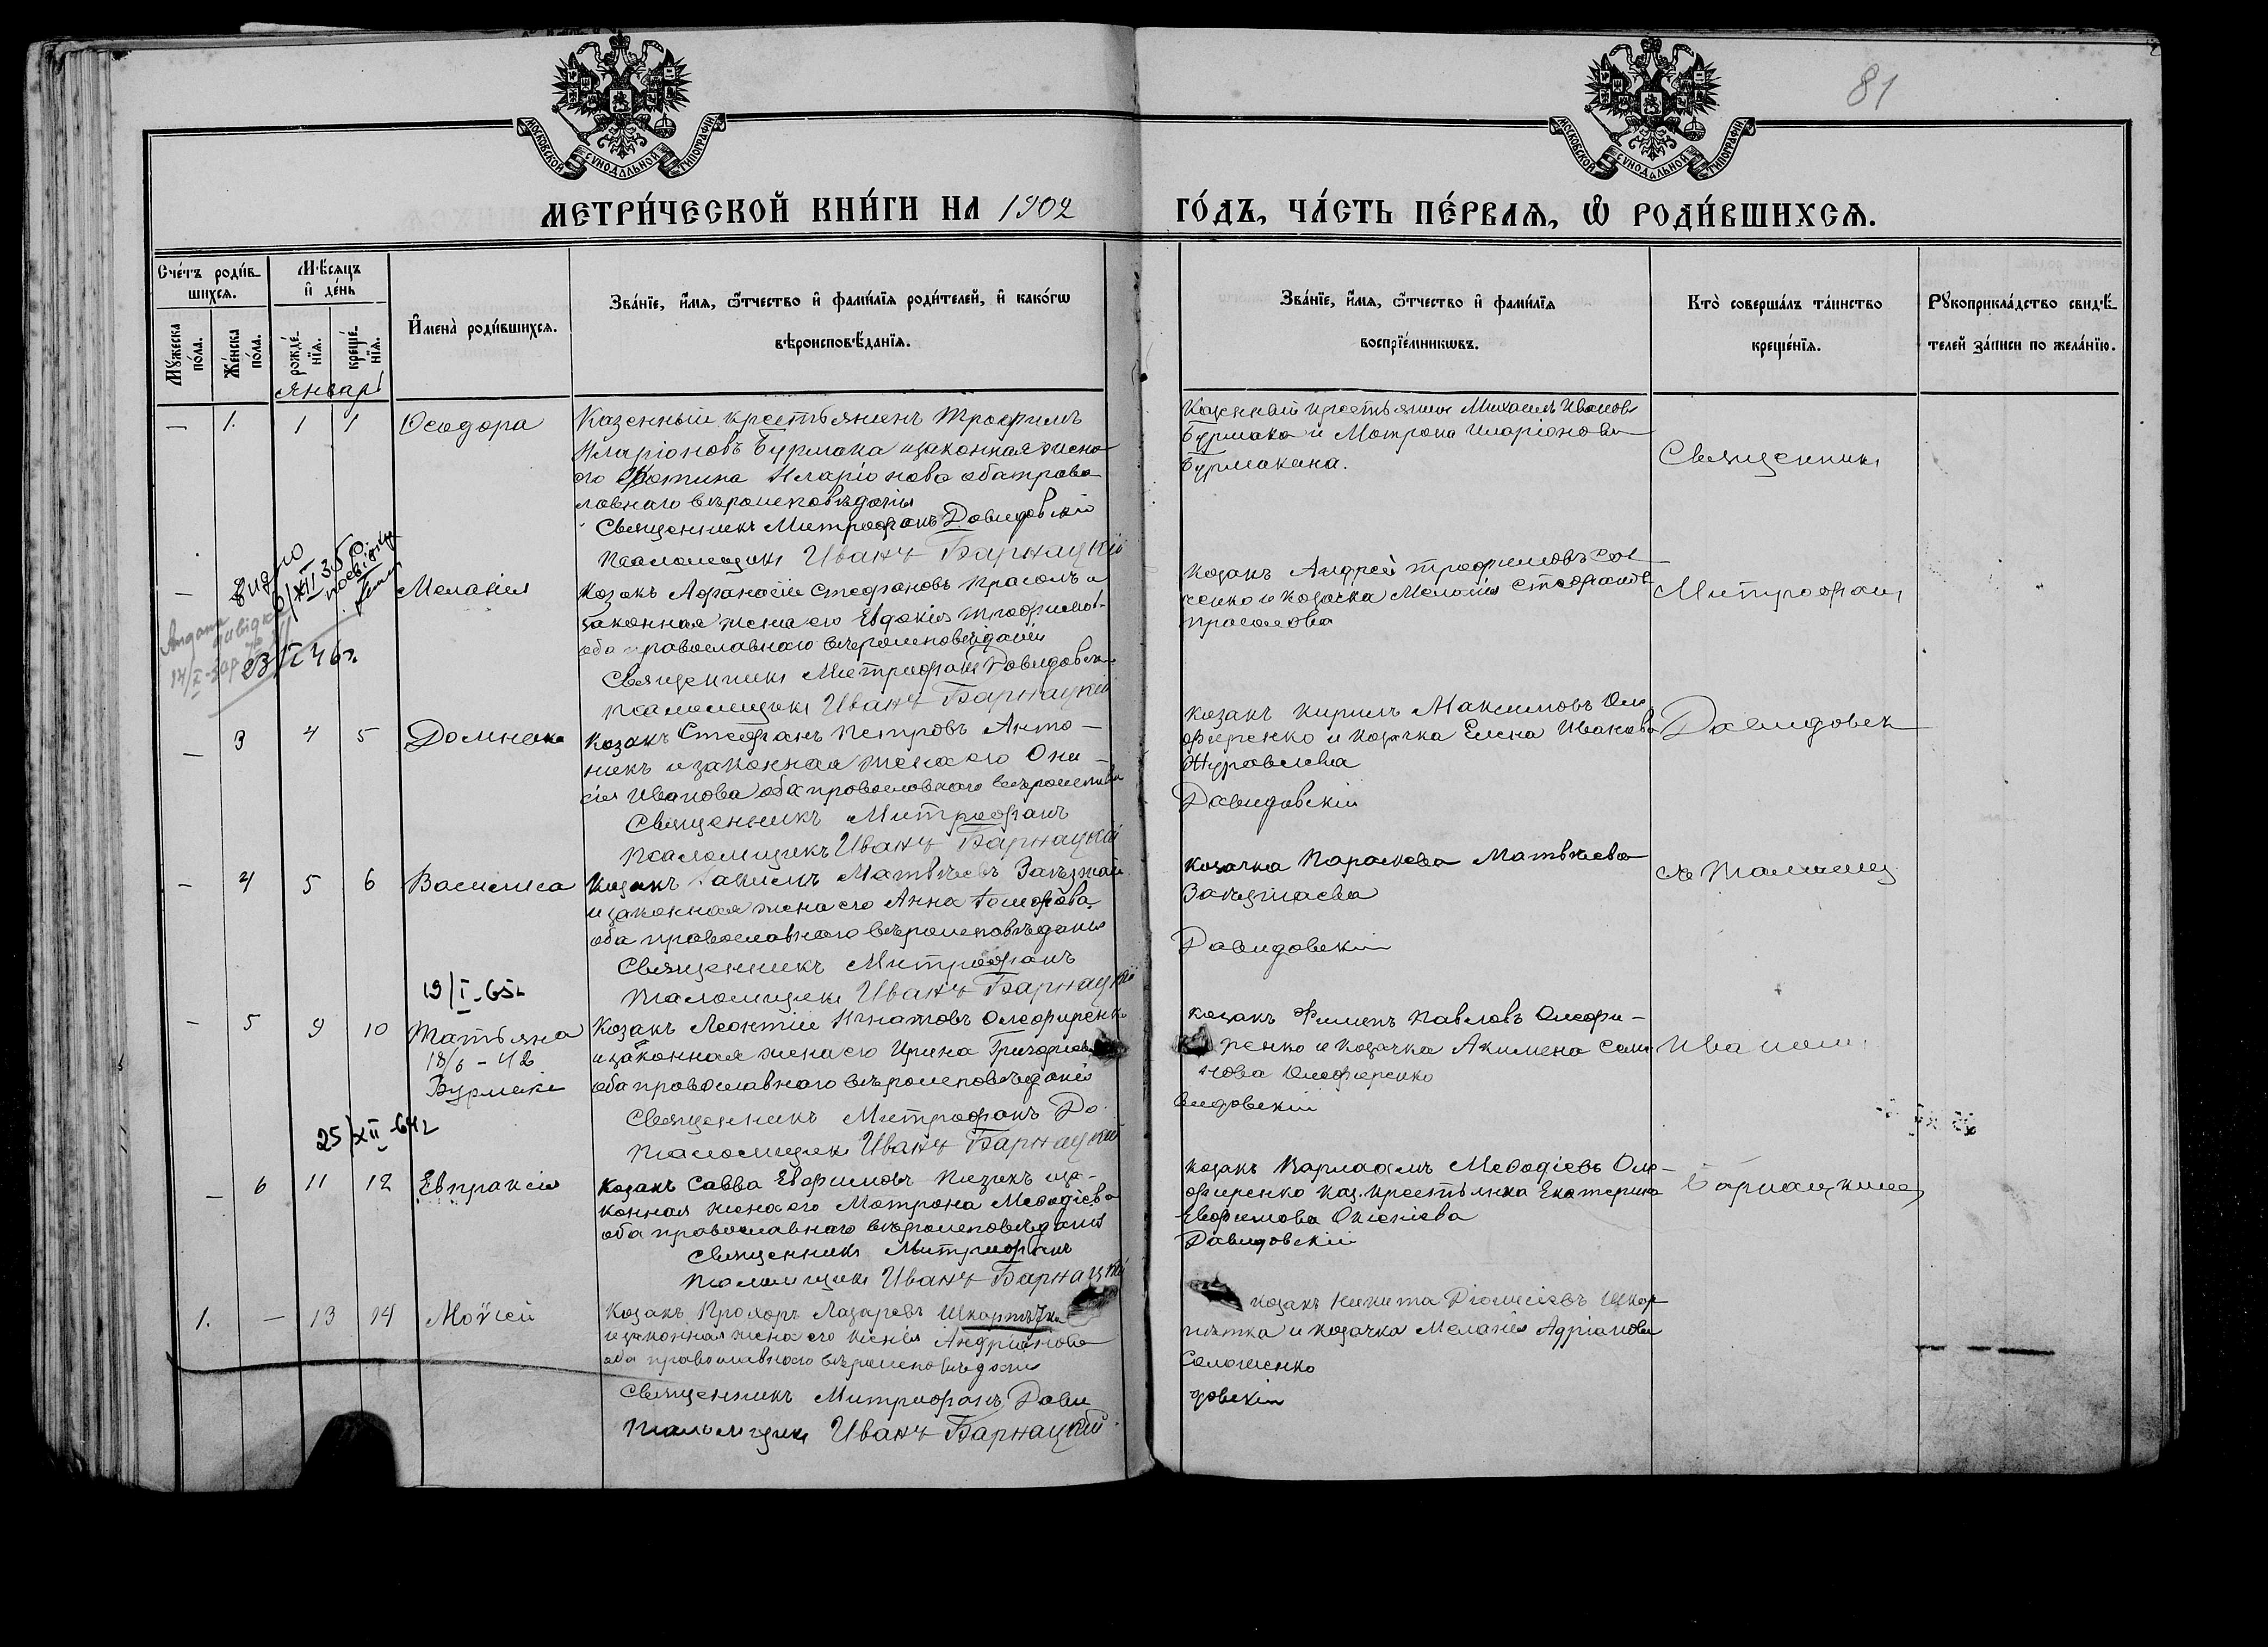 81
МОСКОВСКОЙ СѴНОДАЛЬНОЙ ТИПОГРАФІИ
МОСКОВСКОЙ СѴНОДАЛЬНОЙ ТИПОГРАФІИ
МЕТРИ́ЧЕСКОЙ КНИ́ГИ НА 1902 ГО́ДЪ, ЧА́СТЬ ПЕ́РВАѦ, Ѡ҆ РОДИ́ВШИХСѦ.
Сче́тъ роди́в-
шихсѧ.
Мꙋ́жеска
по́ла.
Же́нска
по́ла.
Мѣ́сѧцъ
и҆ де́нь
рожде́-
нїѧ.
креще́-
нїѧ.
Январь
И҆мена̀ роди́вшихсѧ.
Зва́нїе, и҆́мѧ, ѻ҆́тчество и҆ фами́лїѧ роди́телей, и҆ како́гѡ
вѣроисповѣ́данїѧ.
Зва́нїе, и҆́мѧ, ѻ҆́тчество и҆ фами́лїѧ
воспрїе́мникѡвъ.
Кто̀ соверша́лъ та́инство
креще́нїѧ.
Рꙋкоприкла́дство свидѣ́-
телей за́писи по жела́нїю.
— 1. 1 1 Ѳеодора
Казенный крестьянинъ Трофимъ
Иларіоновъ Бурмака и законная жена
его Фотина Иларіонова оба право
лавнаго вѣроисповѣданія
Священникъ Митрофанъ Давидовскій
Псаломщикъ Иванъ Барнацкій
Казенный крестьянинъ Михаилъ Ивановъ
Бурмака и Мотрона Иларіонова
Бурмакина.
Священникъ
— Меланія
Видно
23/I 46 г.
Козакъ Афанасій Стефановъ Прасолъ и
законная жена его Евдокія Трофимов-
оба православнаго вѣроисповѣданія
Священникъ Митрофанъ Давидовск
Псаломщикъ Иванъ Барнацкій
Козакъ Андрей Трофимовъ
ченко и козачка Меланія Стефанов
Прасолова
Митрофанъ
— 3 4 5 Домника
Козакъ Стефанъ Петровъ Анто-
никъ и законная жена его Они-
сія Иванова оба православнаго вѣроиспов
Священникъ Митрофанъ
Псаломщикъ Иванъ Барнацкій
Козакъ Кирилъ Максимовъ Оле
фиренко и козачка Елена Иванова
Журавлева
Давидовскій
Давидовск
— 4 5 6 Василиса
Козакъ Іакимъ Матвѣевъ Заѣзжай
и законная жена его Анна
оба православнаго вѣроисповѣданія
Священникъ Митрофанъ
Псаломщикъ Иванъ Барнацкій
Козачка Параскева Матвѣева
Давидовскій
съ Псаломщ
19/I-65 г
— 5 9 10 Татьяна
18/6 - 42
Бурмакі
Козакъ Леонтій Игнатовъ Олефиренк
и законная жена его Ирина Григорієв
оба православнаго вѣроисповѣданія
Священникъ Митрофанъ Да
Псаломщикъ Иванъ Барнацкій
козакъ Филипъ Павловъ Олефи-
ренко и козачка Акилина Сам
нова Олефиренко
видовскій
Иваном
25/XII-64 г
— 6 11 12 Евпраксія
Козакъ Савва Евфимовъ Пизикъ и за-
конная жена его Мотрона Меѳодіева
оба православнаго вѣроисповѣданія
Священникъ Митрофанъ
Псаломщикъ Иванъ Барнацкій
козакъ Варлаамъ Меѳодіевъ Оле-
фиренко каз. крестьянка Екатерина
Евфимова
Давидовскій
Барнацкимъ
1. — 13 14 Моѵсей
Козакъ Прохоръ Лазаревъ
и законная жена его Ксенія Андріянова
оба православнаго вѣроисповѣданія
Священникъ Митрофанъ Дави
Псаломщикъ Иванъ Барнацкій
козакъ Никита Діонисіевъ Шкар-
пѣтка и козачка Меланія Адріанова
Соломенко
довскій